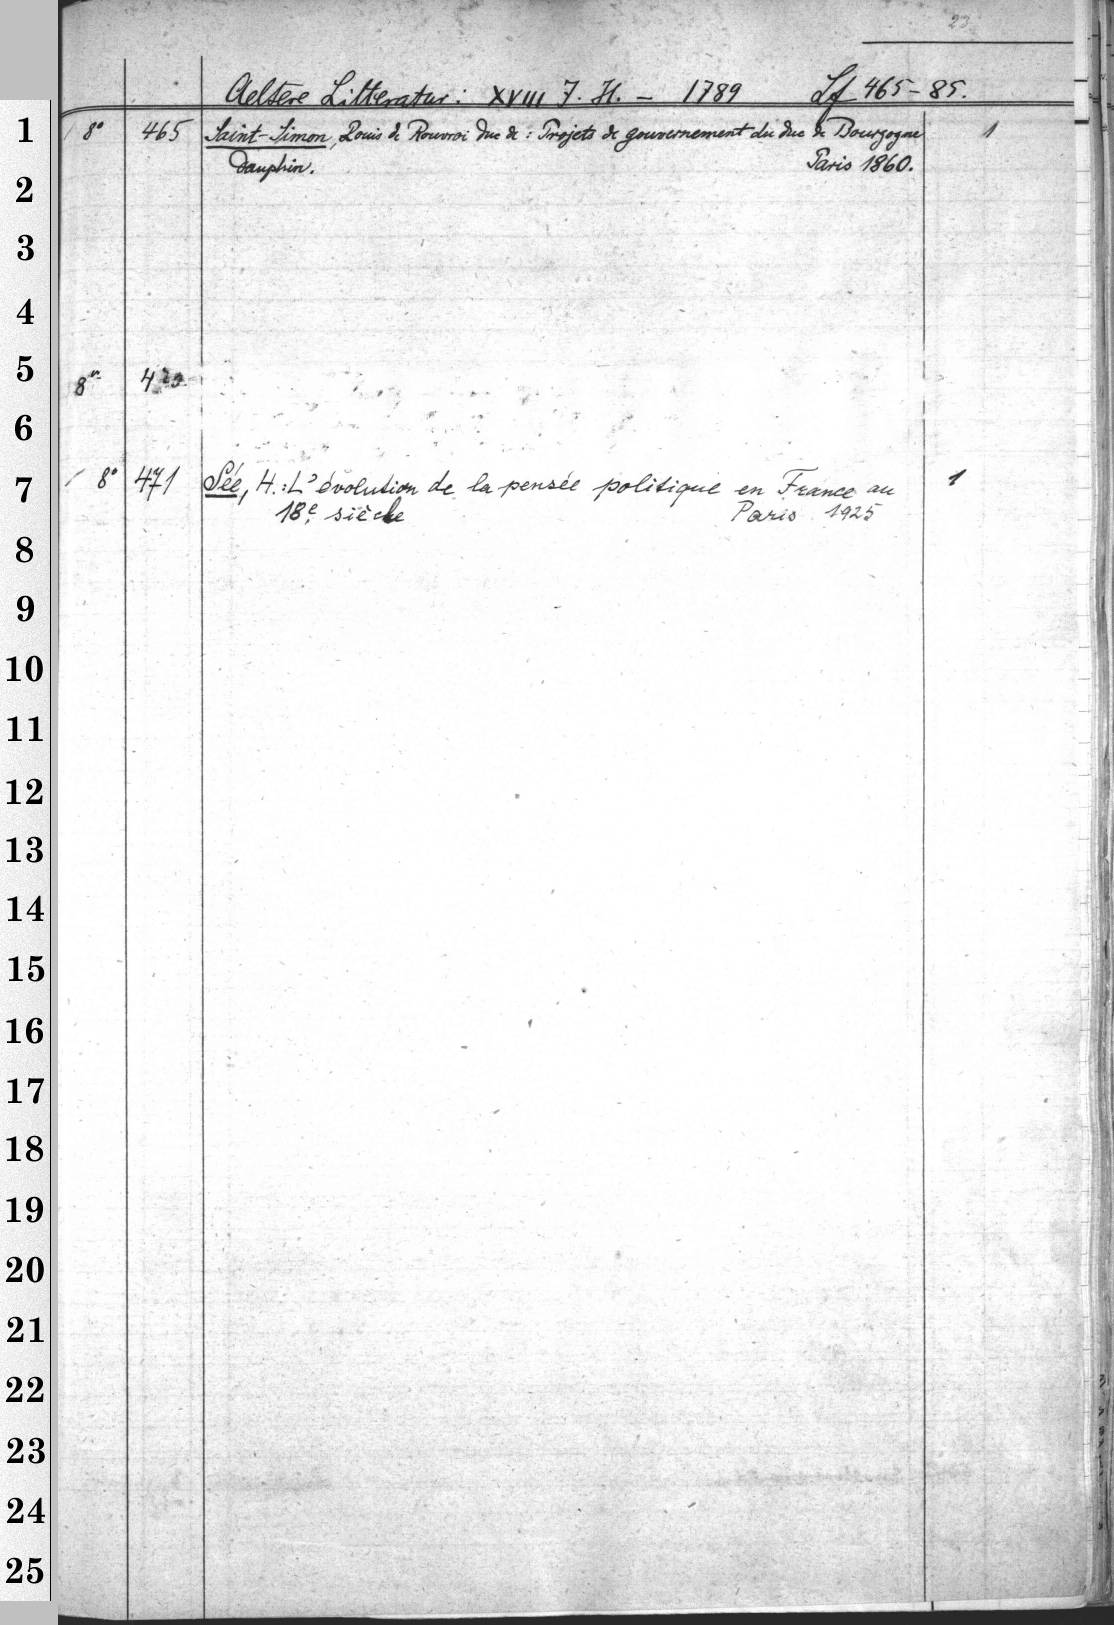 23
Aeltere Litteratur: XVIII J. H. – 1789 Lf 465–85.
1 8° 465 Saint-Simon, Louis de Rouvroi duc de: Projets de gouvernement du duc de Bourgogne 1
dauphin. Paris 1860.
2
3
4
5
8° 4
6
7 8° 471 Sée, H.: L'évolution de la pensée politique en France au 1
18e siècle Paris 1925
8
9
10
11
12
13
14
15
16
17
18
19
20
21
22
23
24
25